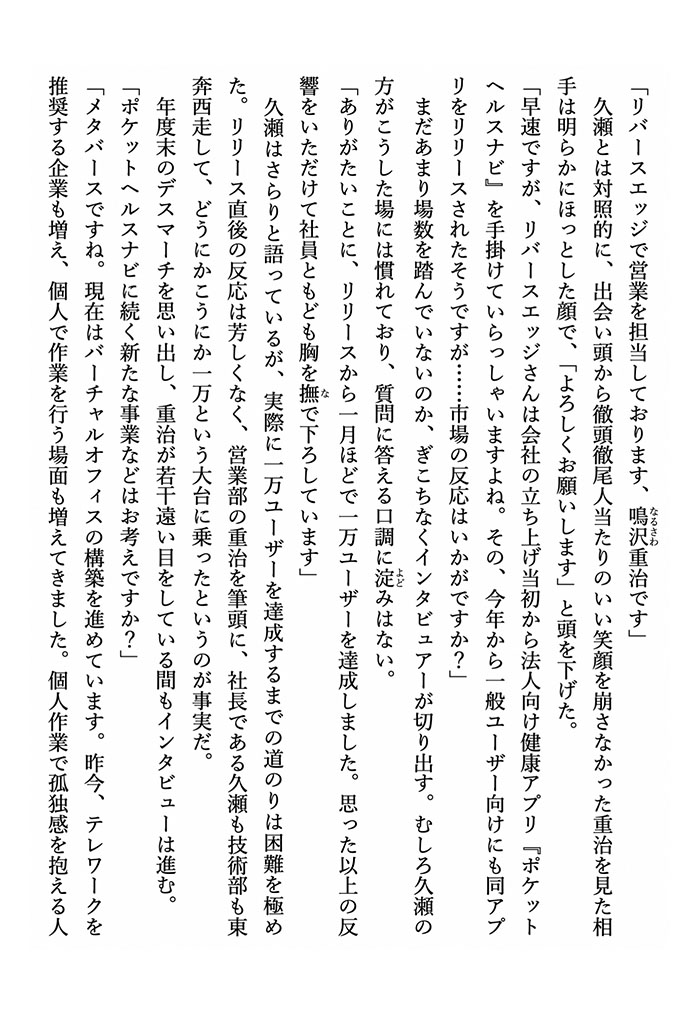 「リバースエッジで営業を担当しております、鳴沢重治です」
久瀬とは対照的に、出会い頭から徹頭徹尾人当たりのいい笑顔を崩さなかった重治を見た相
手は明らかにほっとした顔で、「よろしくお願いします」と頭を下げた。
「早速ですが、リバースエッジさんは会社の立ち上げ当初から法人向け健康アプリ『ポケット
ヘルスナビ』を手掛けていらっしゃいますよね。その、今年から一般ユーザー向けにも同アプ
リをリリースされたそうですが……市場の反応はいかがですか？」
まだあまり場数を踏んでいないのか、ぎこちなくインタビュアーが切り出す。むしろ久瀬の
方がこうした場には慣れており、質問に答える口調に淀みはない。
「ありがたいことに、リリースから一月ほどで一万ユーザーを達成しました。思った以上の反
響をいただけて社員ともども胸を撫で下ろしています」
久瀬はさらりと語っているが、実際に一万ユーザーを達成するまでの道のりは困難を極め
た。リリース直後の反応は芳しくなく、営業部の重治を筆頭に、社長である久瀬も技術部も東
奔西走して、どうにかこうにか一万という大台に乗ったというのが事実だ。
年度末のデスマーチを思い出し、重治が若干遠い目をしている間もインタビューは進む。
「ポケットヘルスナビに続く新たな事業などはお考えですか？」
「メタバースですね。現在はバーチャルオフィスの構築を進めています。昨今、テレワークを
推奨する企業も増え、個人で作業を行う場面も増えてきました。個人作業で孤独感を抱える人
なるさわ
よど
な